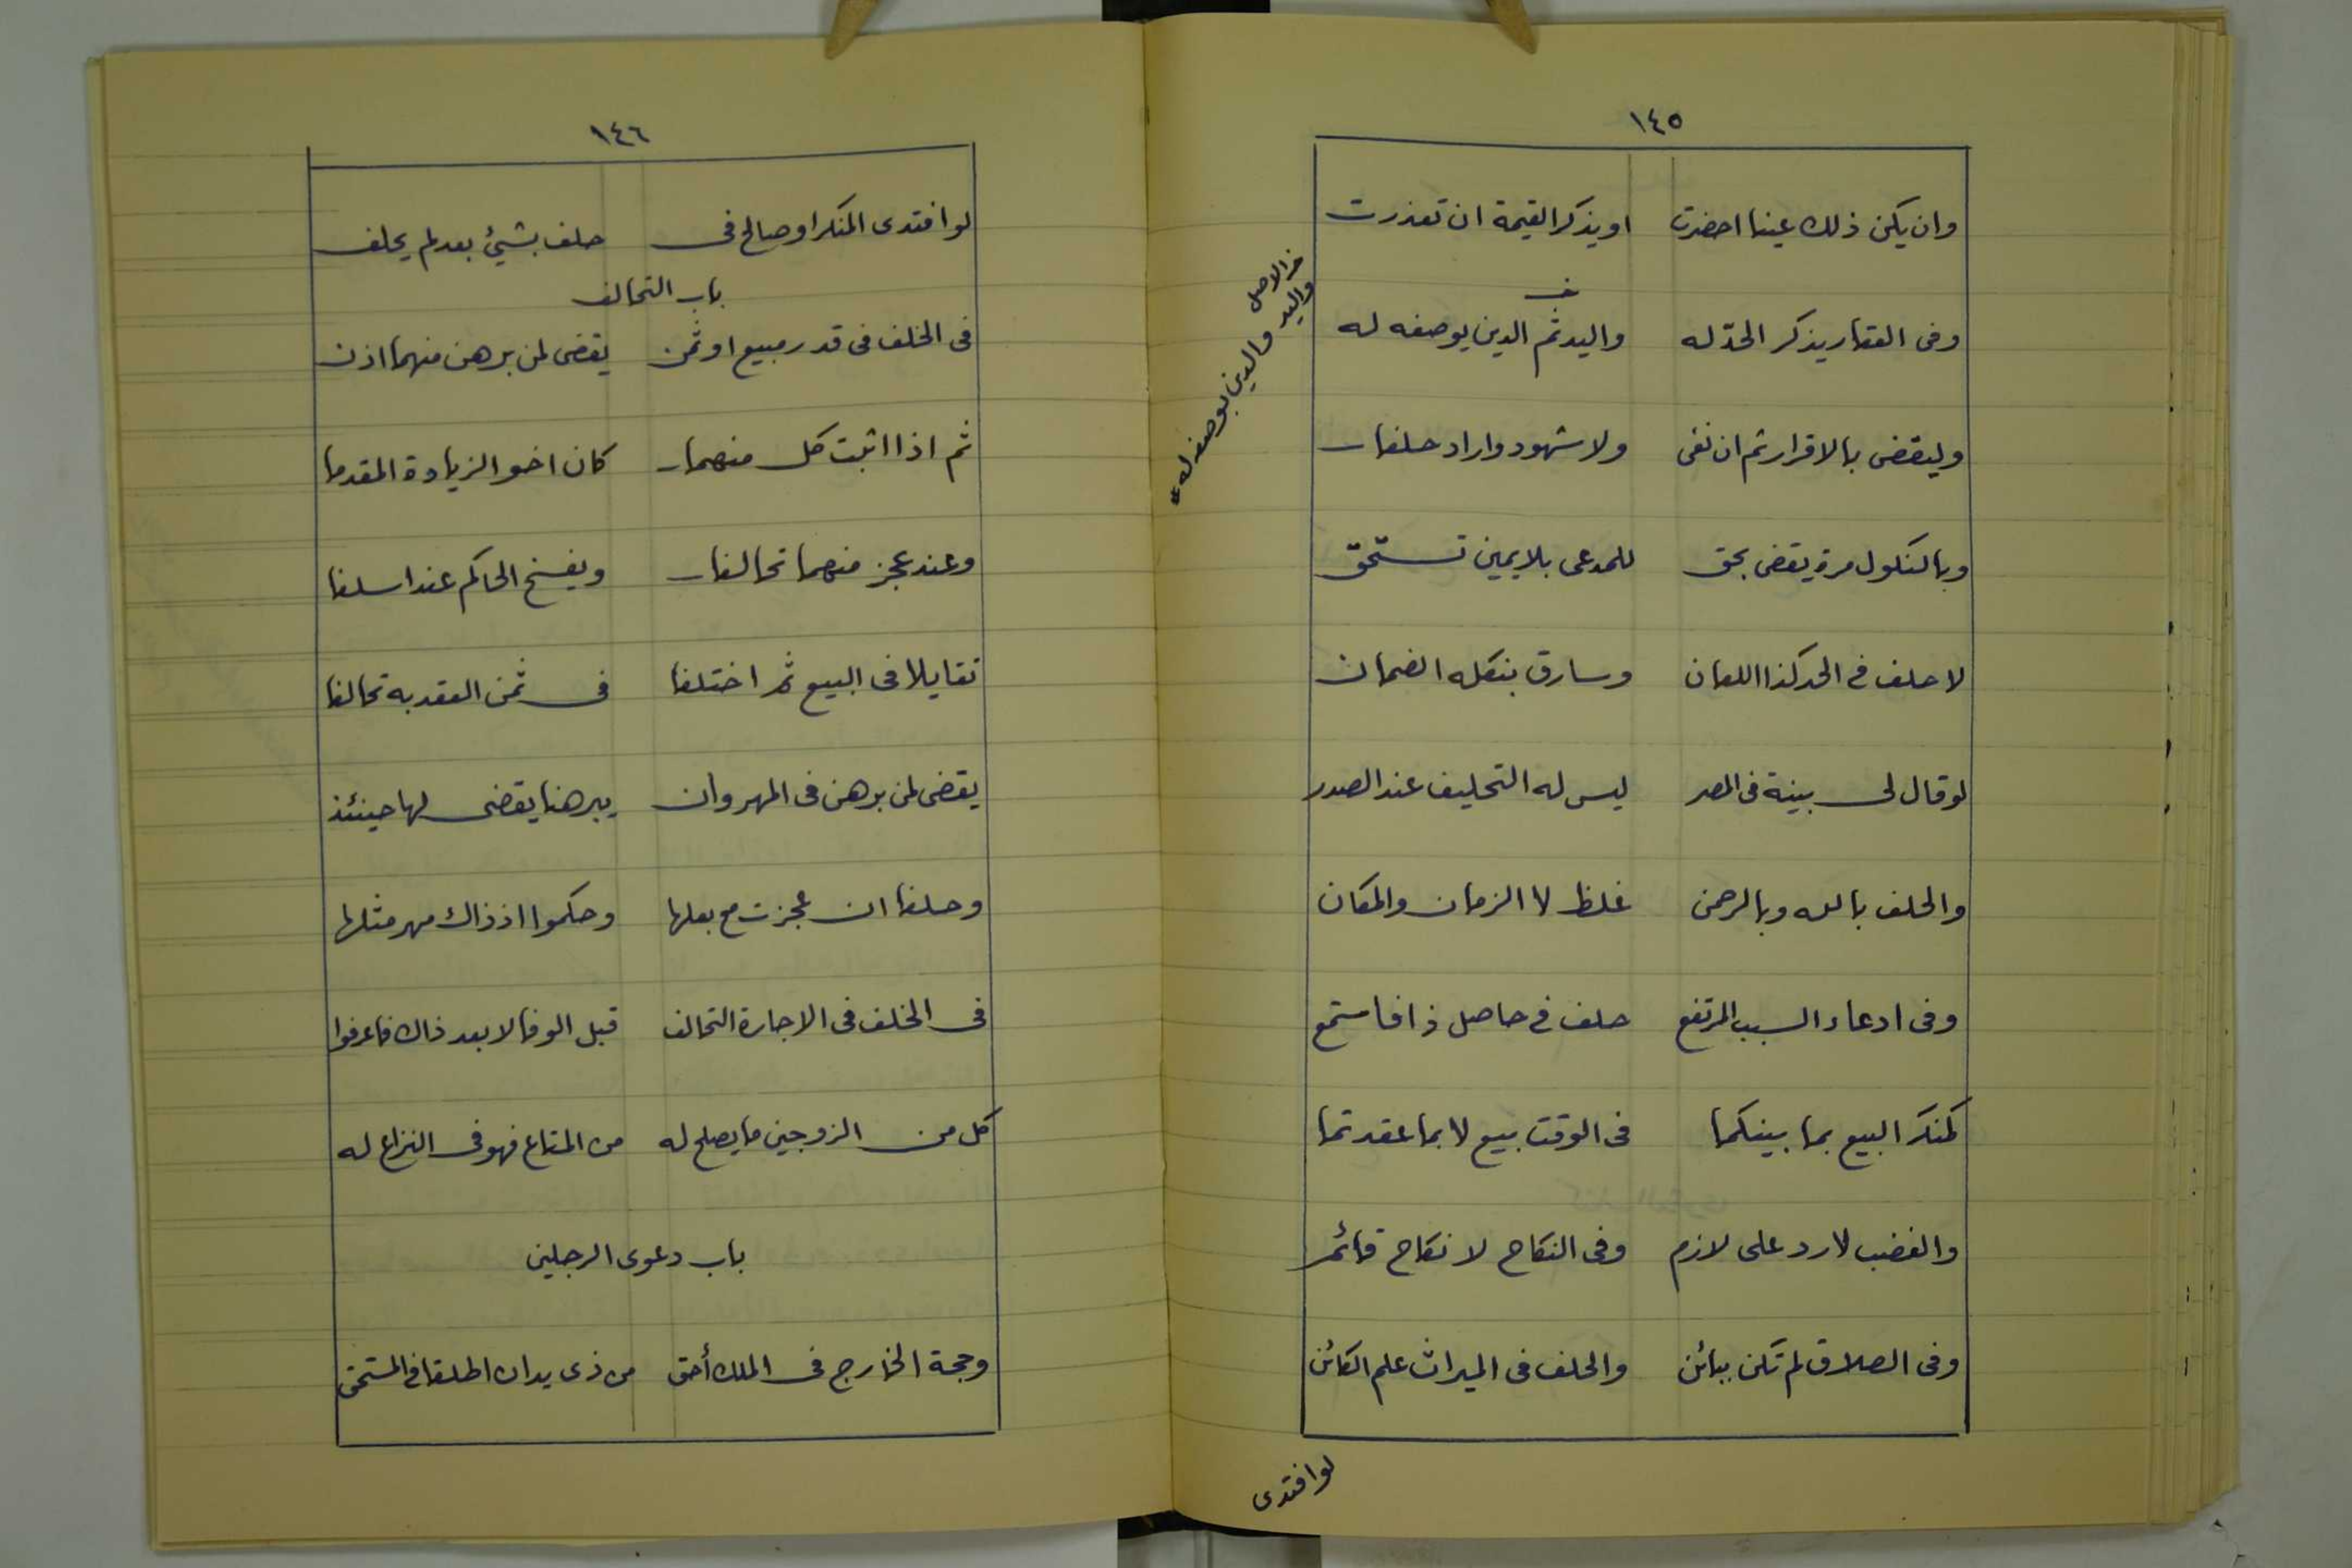 ١٤٥
وان يكن ذلك عينا احضرت اويذكر القيمة ان تعذرت
وفى العقار يذكر الحدّ له واليد ثم الدين يوصفه له
خ
خ الاصل
واليد والدين بوصفه له
وليقضى بالاقرار ثم ان نفى ولا شهود واراد حلفا
وبالنكول مرة يقضى بحق للمدعى بلا يمين تستحق
لا حلف فى الحد كذا اللعان وسارق بنكله الضمان
لو قال لى بينة فى المصر ليس له التحليف عند الصدر
والحلف بالله وبالرحمن غلظ لا الزمان والمكان
وفى ادعاء السبب المرتفع حلف فى حاصل ذا فاستمع
كمنكر البيع بما بينكما فى الوقت بيع لا بما عقدتما
والغضب لا رد على لازم وفى النكاح لا نكاح قائم
وفى الطلاق لم تكن ببائن والحلف فى الميراث علم الكائن
لو افتدى
١٤٦
لو افتدى المنكر او صالح فى حلف بشيئ بعد لم يحلف
باب التحالف
فى الخلف فى قدر مبيع او ثمن يقضى لمن برهن منهما اذن
ثم اذا اثبت كل منهما كان اخو الزيادة المقدما
وعند عجز منهما تحالفا ويفسخ الحاكم عند اسلفا
تقايلا فى البيع ثم اختلفا فى ثمن العقد به تحالفا
يقضى لمن برهن فى المهر وان يبرهنا يقضى لها حينئذ
وحلفا ان عجزت مع بعلها وحكموا اذ ذاك مهر مثلها
فى الخلف فى الاجارة التحالف قبل الوفا لا بعد ذاك فاعرفوا
كل من الزوجين ما يصلح له من المتاع فهو فى النزاع له
باب دعوى الرجلين
وحجة الخارج فى الملك أحق من ذى يد ان اطلقا فى المستحق